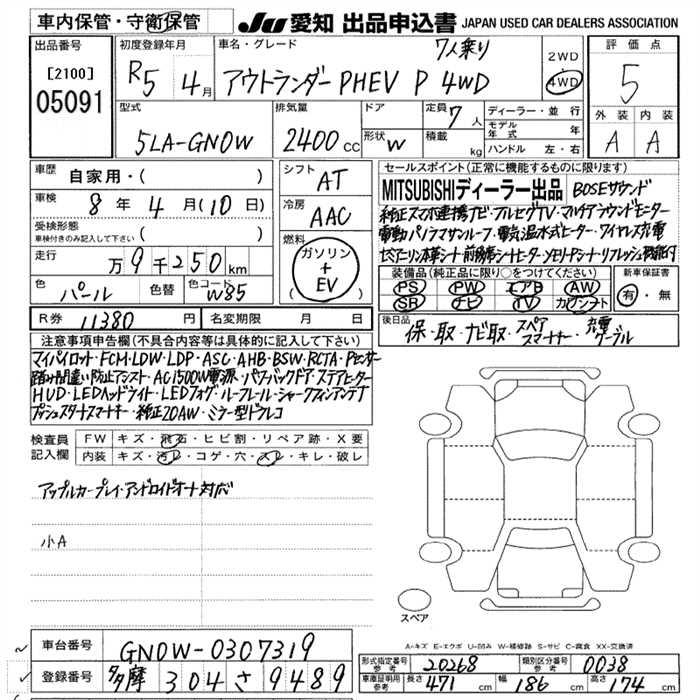 車内保管・守衛保管
JU 愛知 出品申込書 JAPAN USED CAR DEALERS ASSOCIATION
出品番号
[2100]
05091
初度登録年月
R5 4月
車名・グレード
7人乗り
アウトランダーPHEV P 4WD
2WD
・
4WD
評価点
5
外装 内装
A A
型式
5LA-GN0W
排気量
2400cc
ドア
形状 W
定員 7人
積載 kg
ディーラー・並行
モデル年式 年
ハンドル 左・右
車歴
自家用・( )
車検
8年4月(10日)
受検形態
車検付きのみ記入して下さい ( )
走行
万9千250km
色 パール
色替
色コード W85
シフト
AT
冷房
AAC
燃料
ガソリン
+
EV
( )
セールスポイント(正常に機能するものに限ります)
MITSUBISHIディーラー出品 BOSEサウンド
純正スマホ連携ナビ・フルセグTV・マルチアラウンドモニター
電動パノラマサンルーフ・電気温水式ヒーター・ワイヤレス充電
セミアニリン本革シート 前後席シートヒーター・メモリーPシート・リフレッシュ機能付
装備品(純正品に限り○をつけてください)
PS PW エアB AW
SR ナビ TV カワシート
新車保証書
有・無
R券 11380円
名変期限 月 日
後日品
保・取・ナビ取・スペアスマートキー・充電ケーブル
注意事項申告欄(不具合内容等は具体的に記入して下さい)
マイパイロット・FCM・LDW・LDP・ASC・AHB・BSW・RCTA・Pセンサー
踏み間違い防止アシスト・AC1500W電源・パワーバックドア・ステアヒーター
HUD・LEDヘッドライト・LEDフォグ・ルーフレール・シャークフィンアンテナ
プッシュスタートスマートキー・純正20AW・ミラー型ドラレコ
検査員記入欄
FW キズ・飛石・ヒビ割・リペア跡・X要
内装 キズ・汚レ・コゲ・穴・スレ・キレ・破レ
アップルカープレイ・アンドロイドオート対応
小A
スペア
A-キズ E-エクボ U-凹み W-補修跡 S-サビ C-腐食 XX-交換済
車台番号 GN0W-0307319
登録番号 多摩 304 さ 9489
形式指定番号 参考 20268
類別区分番号 参考 0038
車庫証明用 参考 長さ 471cm 幅 186cm 高さ 174cm